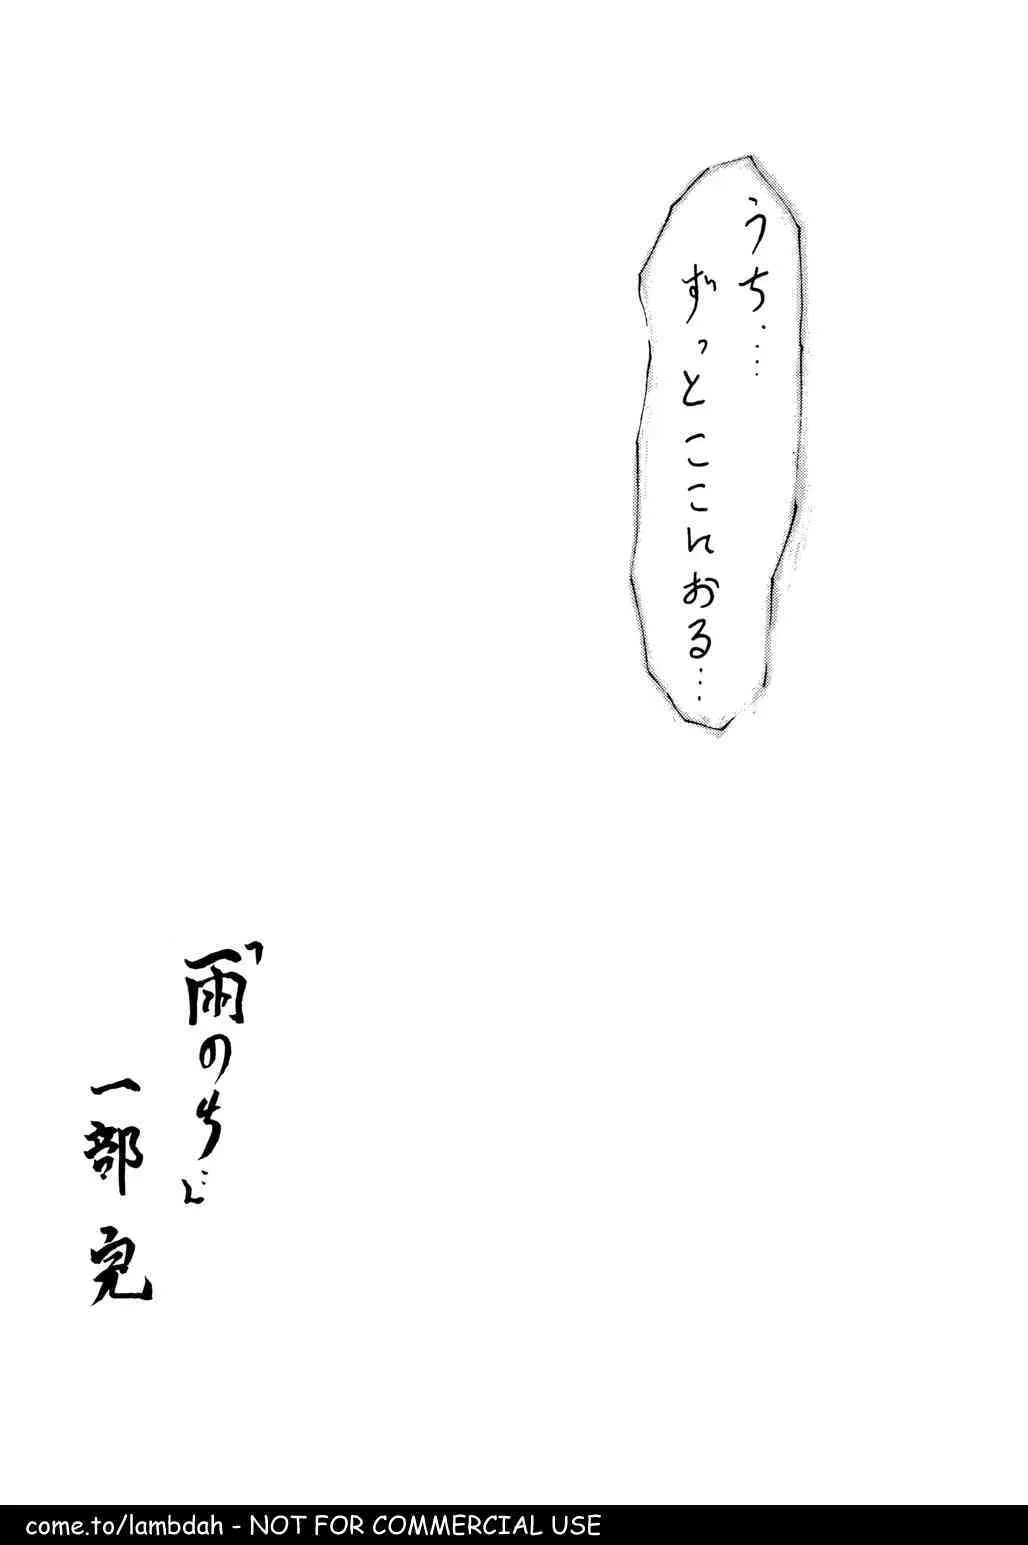 うち‥‥
ずっとここにおる…
「雨のち…」
一部 完
come.to/lambdah - NOT FOR COMMERCIAL USE